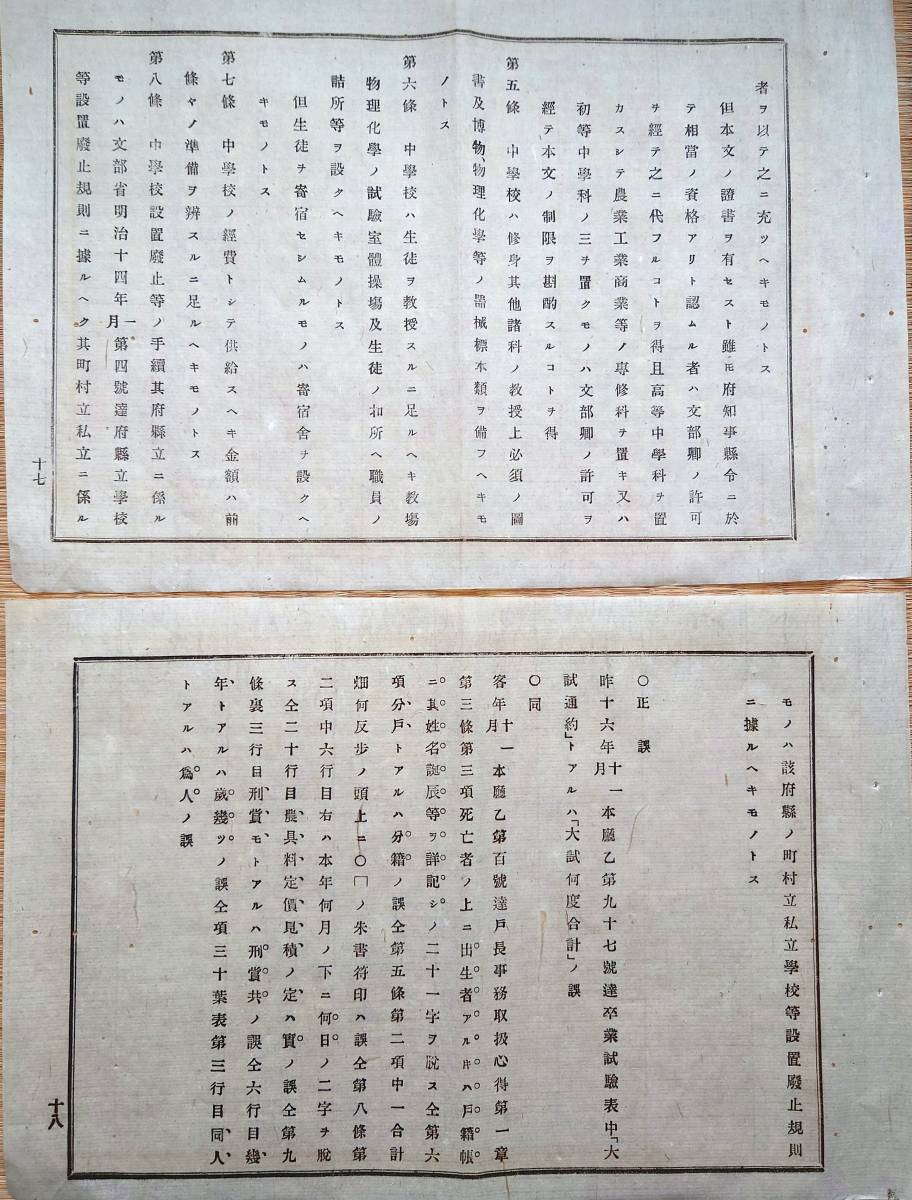 者ヲ以テ之ニ充ツヘキモノトス
但本文ノ證書ヲ有セスト雖モ府知事縣令ニ於
テ相當ノ資格アリト認ムル者ハ文部卿ノ許可
ヲ經テ之ニ代フルコトヲ得且高等中學科ヲ置
カスシテ農業工業商業等ノ專修科ヲ置キ又ハ
初等中學科ノミヲ置クモノハ文部卿ノ許可ヲ
經テ本文ノ制限ヲ斟酌スルコトヲ得
第五條 中學校ハ修身其他諸科ノ教授上必須ノ圖
書及博物、物理化學等ノ器械標本類ヲ備フヘキモ
ノトス
第六條 中學校ハ生徒ヲ教授スルニ足ルヘキ教塲
物理化學ノ試驗室體操塲及生徒ノ扣所ヘ職員ノ
詰所等ヲ設クヘキモノトス
但生徒ヲ寄宿セシムルモノハ寄宿舍ヲ設クヘ
キモノトス
第七條 中學校ノ經費トシテ供給スヘキ金額ハ前
條々ノ準備ヲ辨スルニ足ルヘキモノトス
第八條 中學校設置廢止等ノ手續其府縣立ニ係ル
モノハ文部省明治十四年一月第四號達府縣立學校
等設置廢止規則ニ據ルヘク其町村立私立ニ係ル
十七
モノハ該府縣ノ町村立私立學校等設置廢止規則
ニ據ルヘキモノトス
〇正誤
昨十六年十一月本廳乙第九十七號達卒業試驗表中「大
試通約」トアルハ「大試何度合計」ノ誤
〇同
客年十一月本廳乙第百號達戸長事務取扱心得第一章
第三條第三項死亡者ノ上ニ出生者アルキハ戸籍帳
ニ其姓名誕辰等ヲ詳記シノ二十一字ヲ脫ス仝第六
項分戸トアルハ分籍ノ誤仝第五條第二項中一合計
畑何反步ノ頭上ニ〇囗ノ朱書符印ハ誤仝第八條第
二項中六行目右ハ本年何月ノ下ニ何日ノ二字ヲ脫
ス仝二十行目農具料定價見積ノ定ハ實ノ誤仝第九
條裏三行目刑賞モトアルハ刑賞共ノ誤仝六行目幾
年トアルハ歲幾ツノ誤仝項三十葉表第三行目同人
トアルハ爲人ノ誤
十八